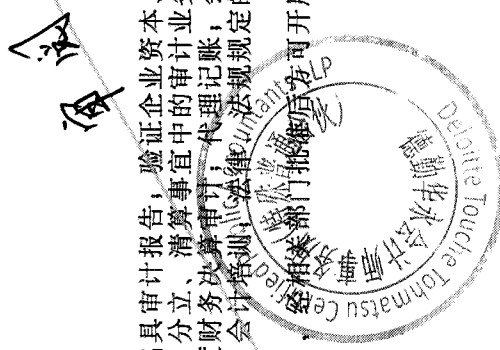 具审计报告；验证企业资本
分立、清算事宜中的审计业
财务决算审计；代理记账；
会计培训；法律、法规规定的
，经相关部门批准后方可开
Deloitte Touche Tohmatsu Certified Public Accountants LLP
德勤华永会计师事务所(特殊普通合伙)